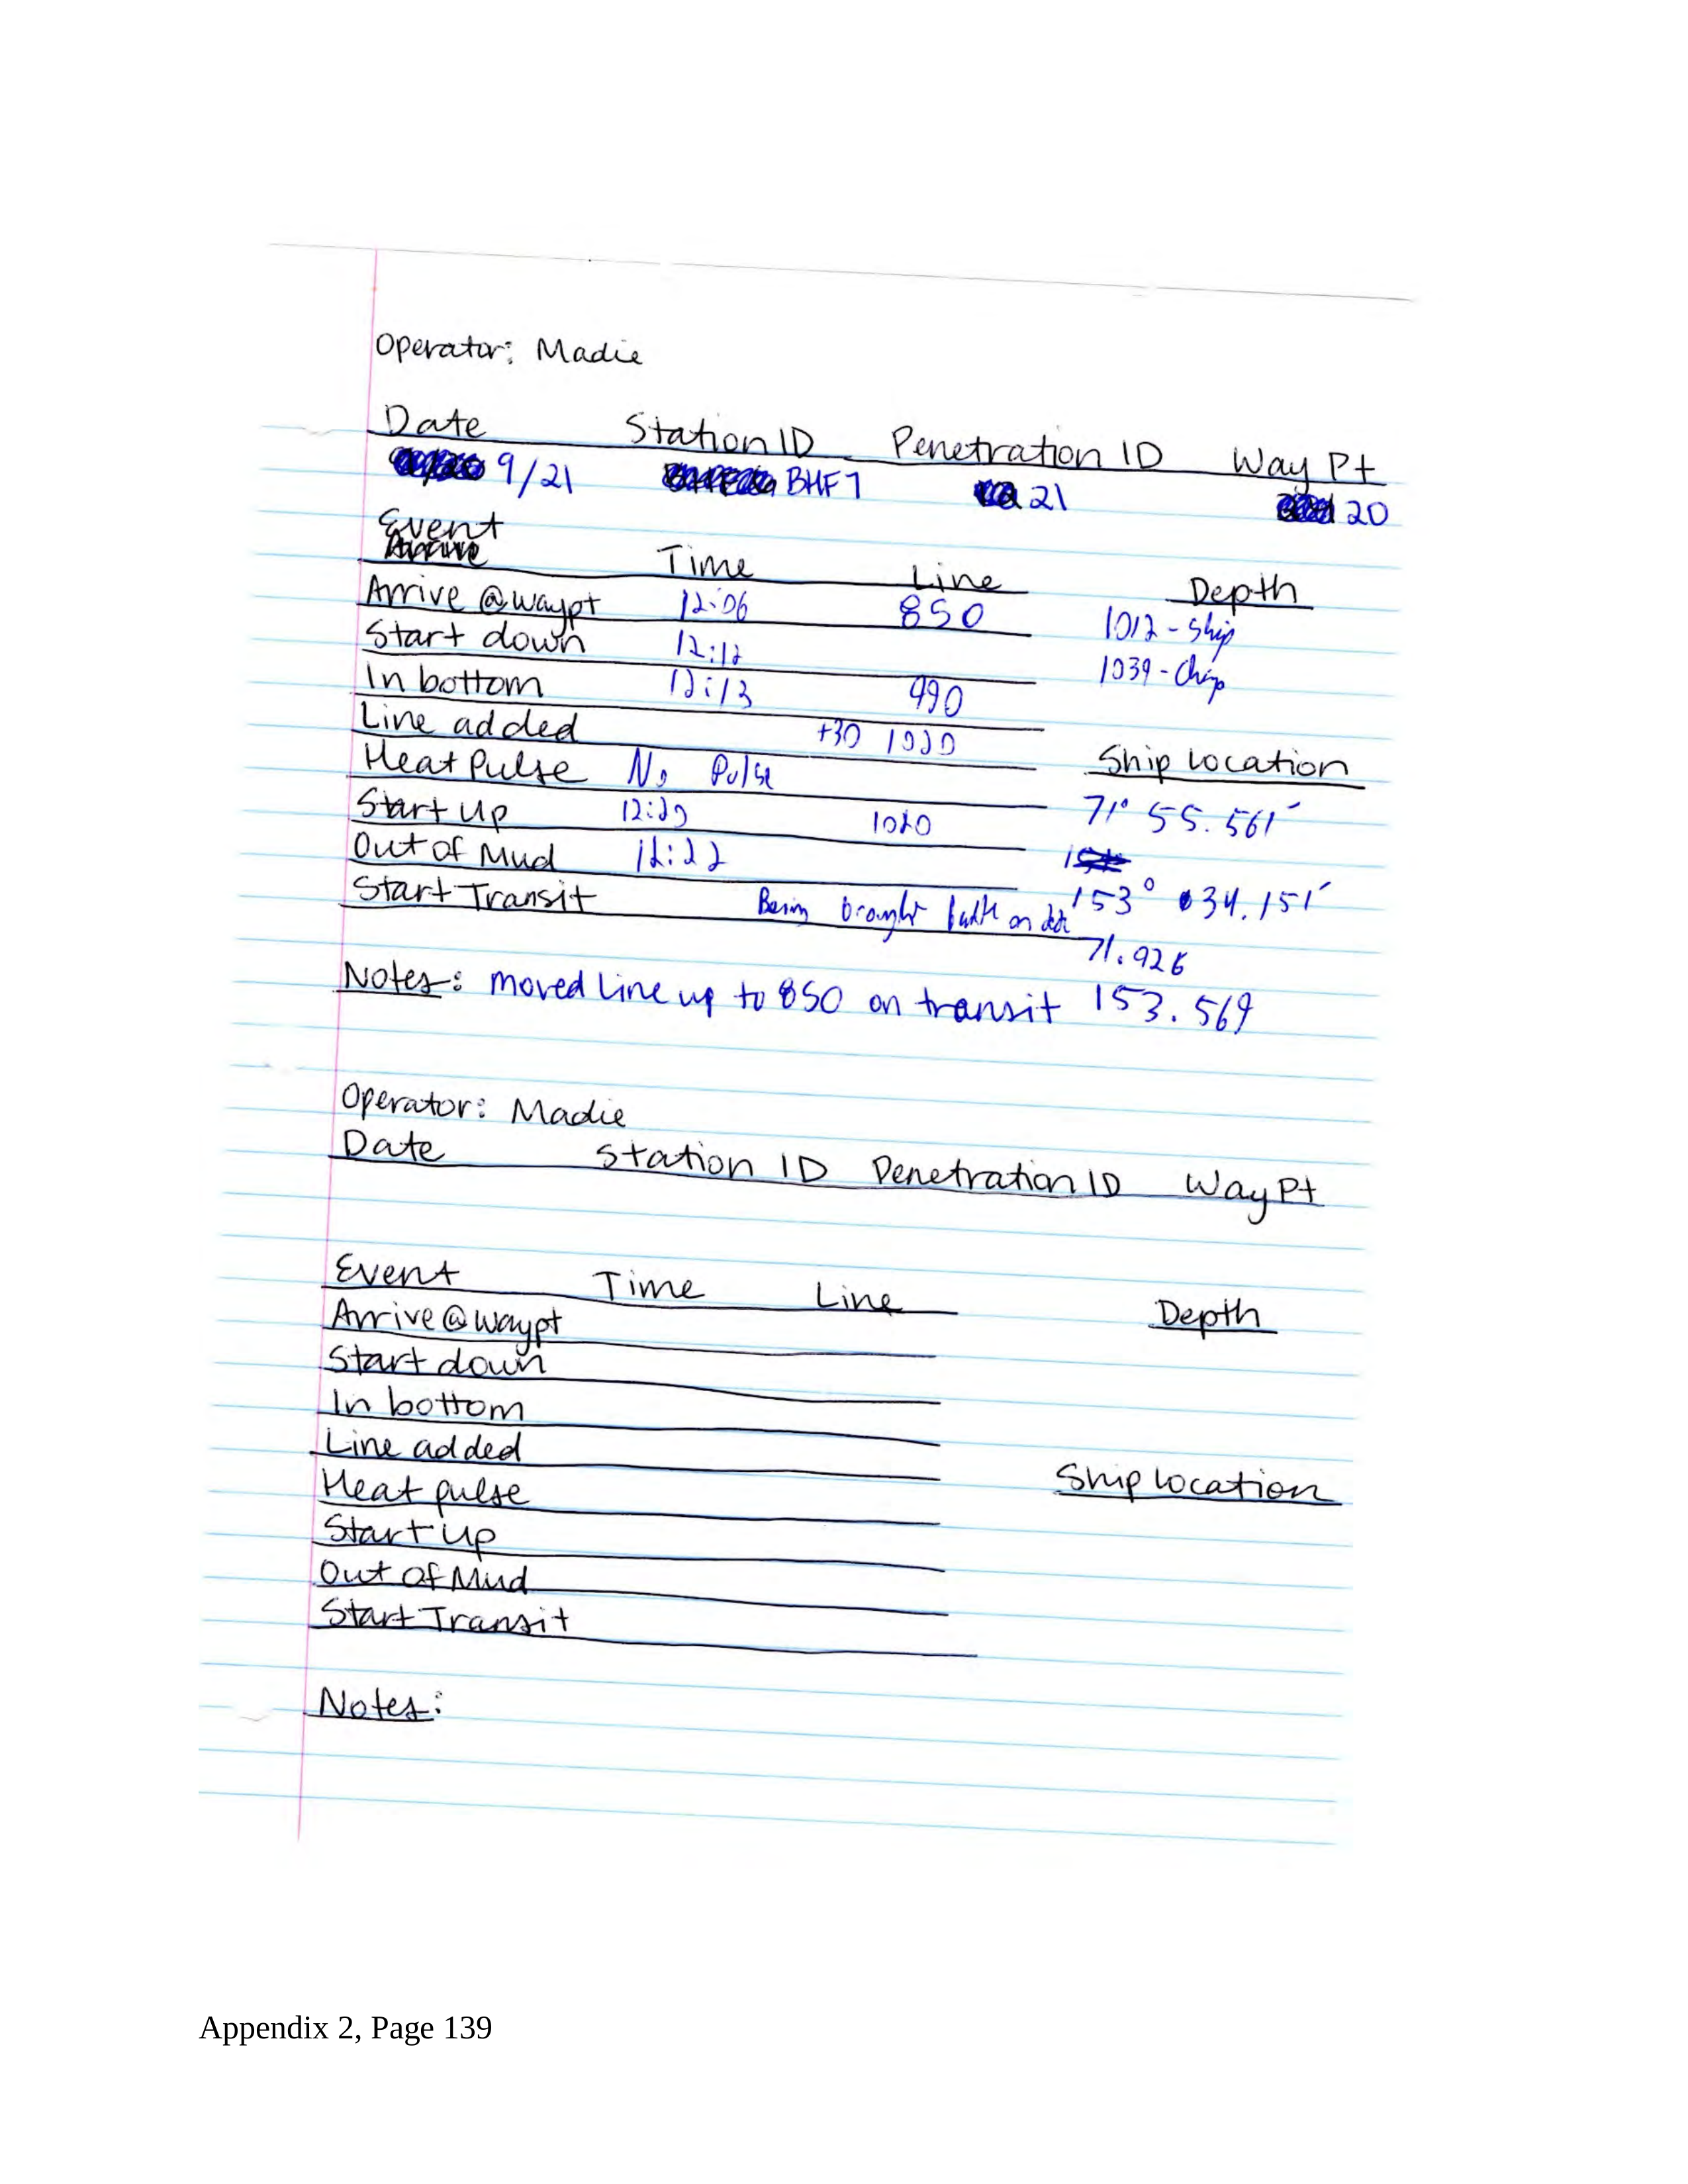 Operator: Madie
Date Station ID Penetration ID Way Pt
9/21 BHF7 21 20
Event
Time Line Depth
Arrive @ waypt 12:06 850 1012 - Ship
Start down 12:12 1039 - Chirp
In bottom 12:13 990
Line added +30 1020
Ship location
Heat Pulse No Pulse
71° 55.561'
Start Up 12:20 1020
Out of Mud 12:22
153° 34.151'
Start Transit Being brought back on
71.926
Notes: moved line up to 850 on transit 153.569
Operator: Madie
Date Station ID Penetration ID Way Pt
Event Time Line Depth
Arrive @ waypt
Start down
In bottom
Line added
Ship location
Heat pulse
Start up
Out of Mud
Start Transit
Notes:
Appendix 2, Page 139